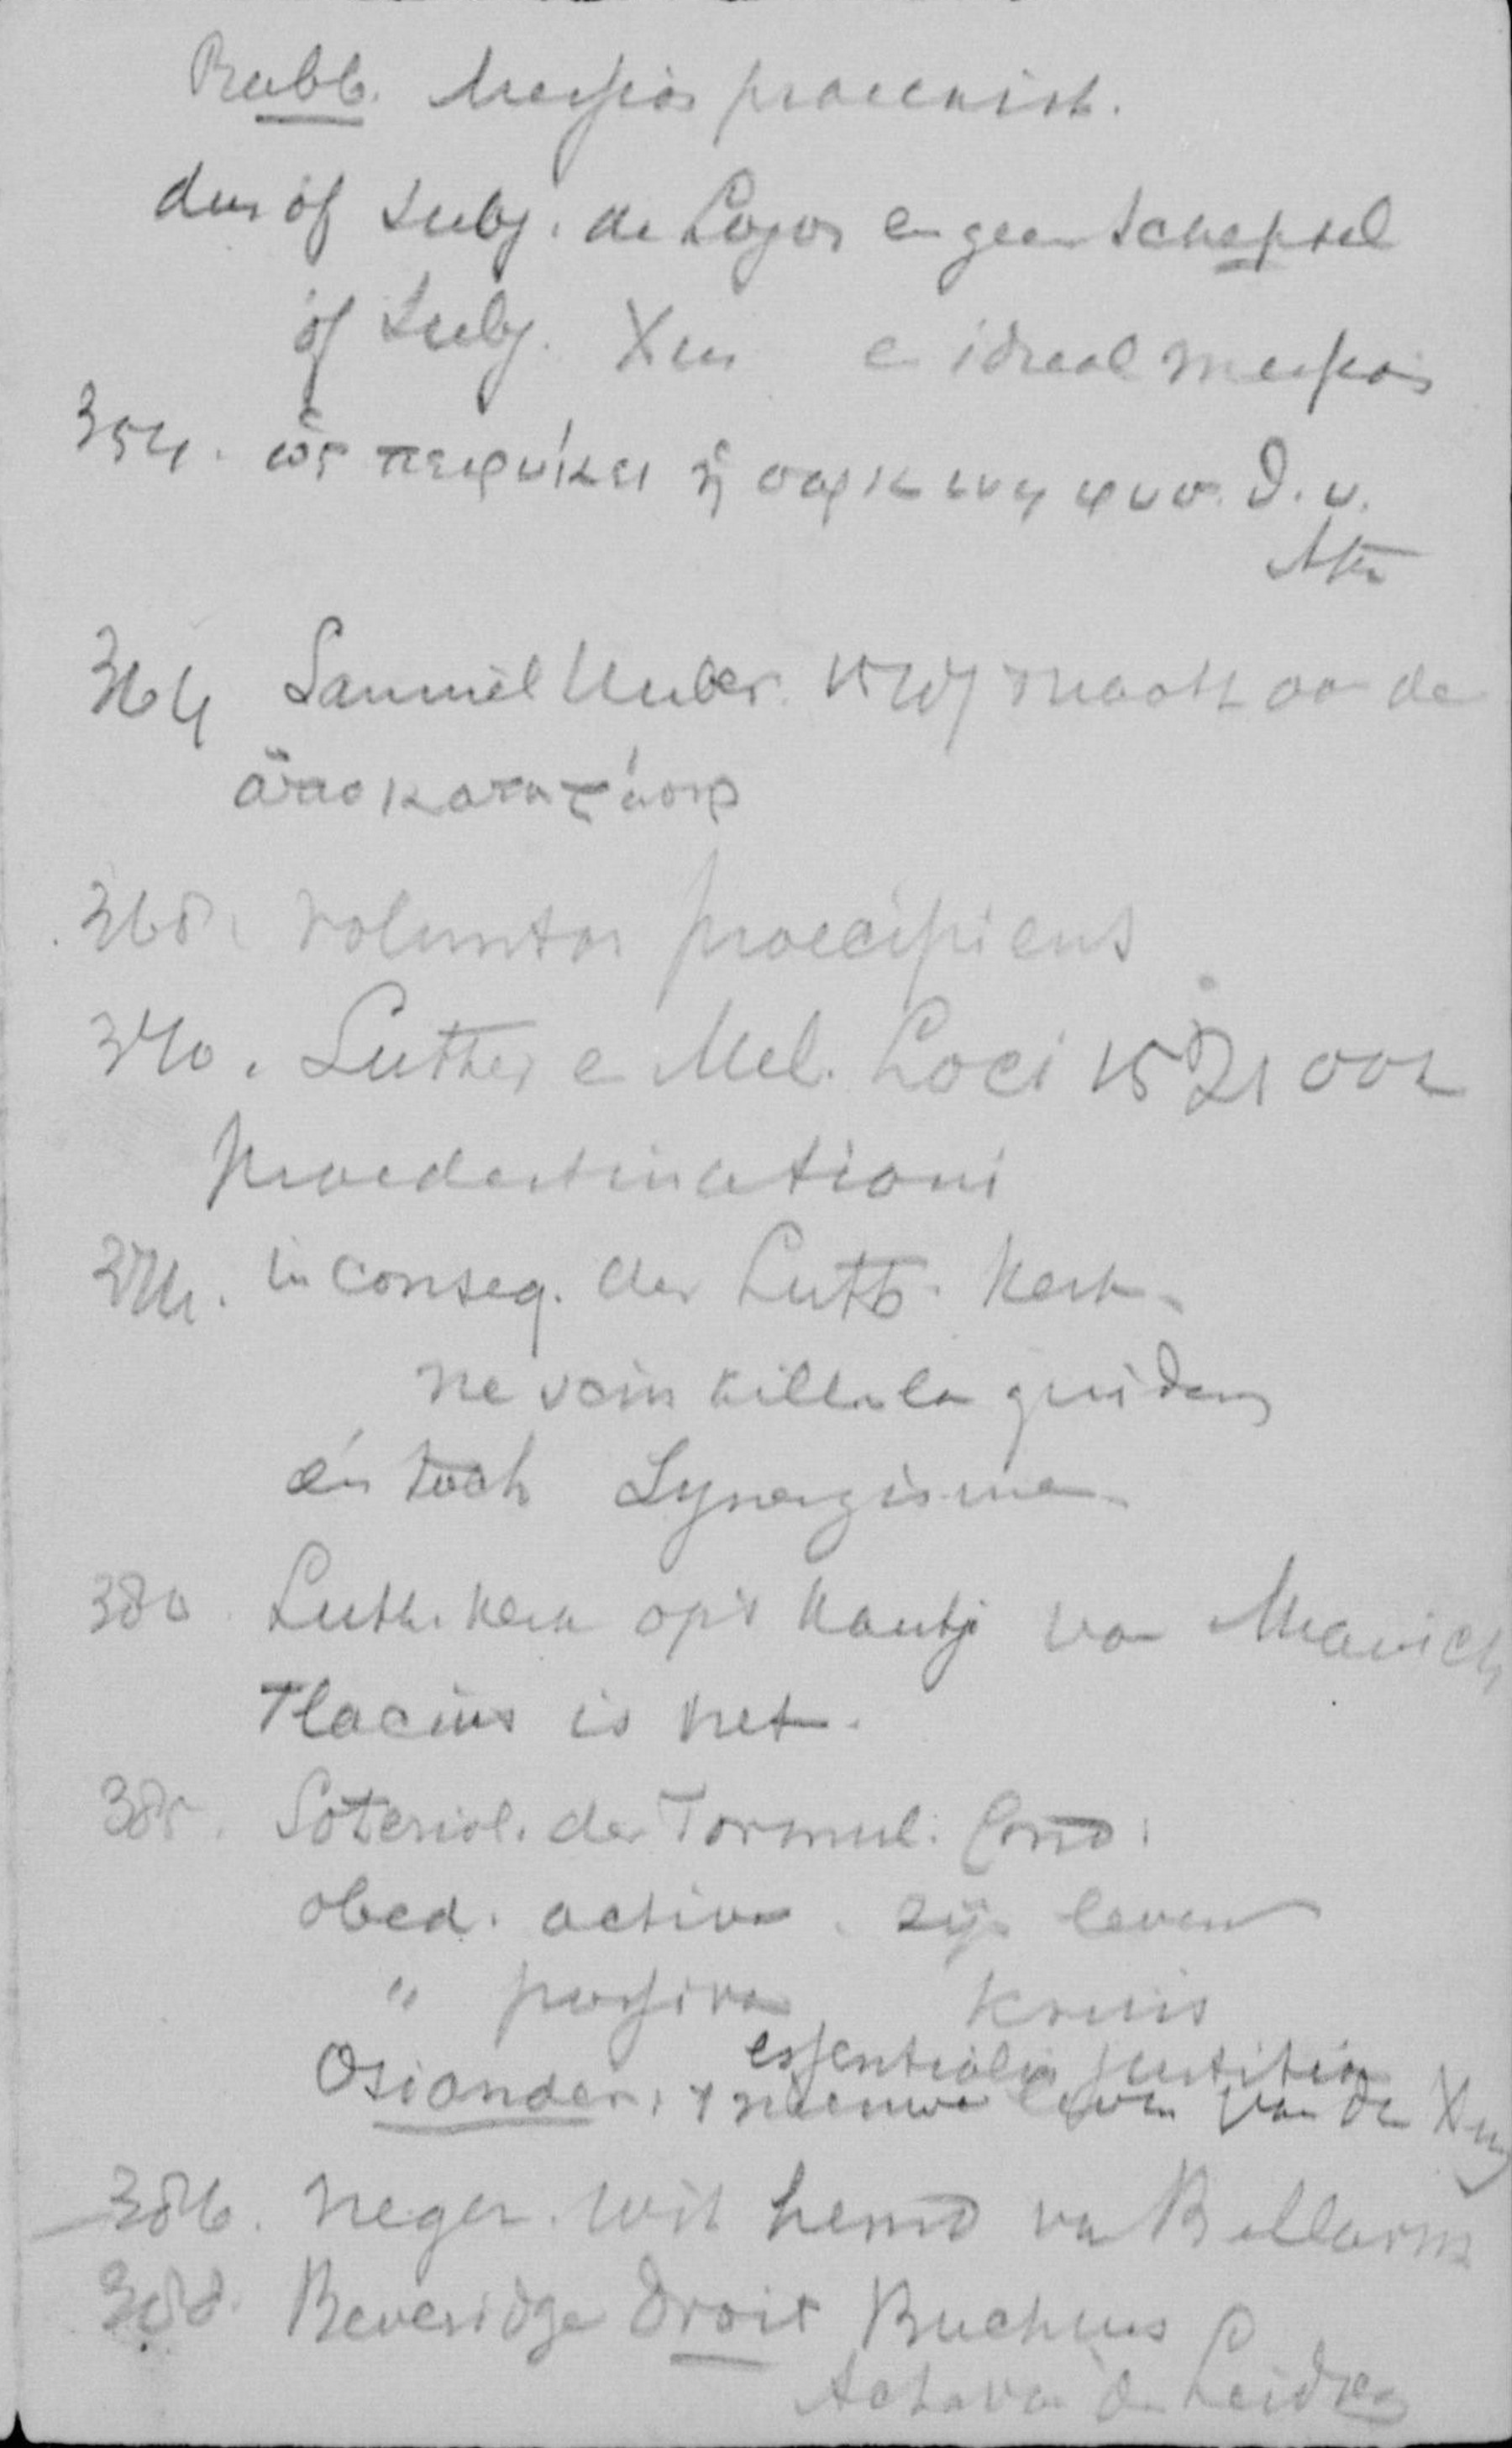 Rabb. Messias praeexist.
dus óf subj. de Logos en geen schepsel
óf subj. Xus en ideaal messias
354. ὡς πεφύκει ἡ σαρκινη φυσ.
364 Samuel Huber maakt de
ἀποκαταστάσις
368. voluntas praecipiens
370. Luther en Mel. Loci 1521 ook
praedestinatiani
in conseq. der Luth. Kerk.
ne scintillula quidem
én toch Synergisme
380. Luth. Kerk op 't kantje van Manich
Flacius is het.
385. Soteriol. der Formul. Conc:
obed. activa. zijn leven
" passiva kruis
essentialis justitia
Osiander: 't nieuwe leven van den Xus
386. neger. wit hemd van Bellarm
388. Beveridge Droit
Acta van den